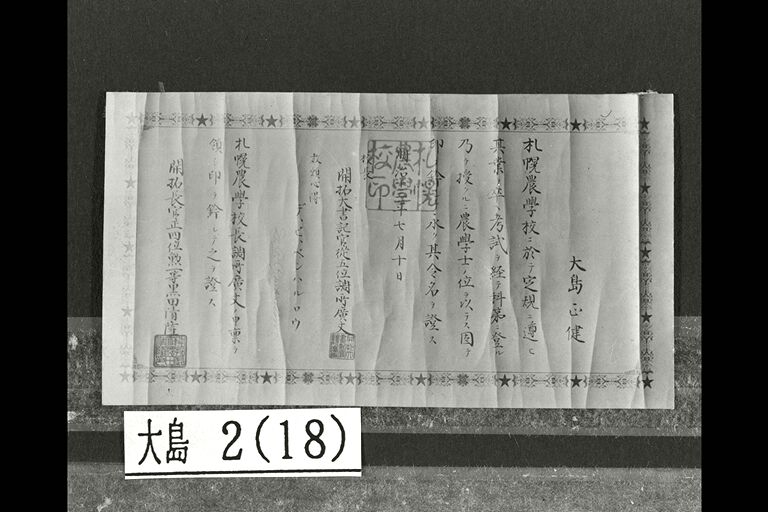 大島正健
札幌農學校ニ於テ定規ニ遵ヒ
其業ヲ卒ヘ考試ヲ経テ科第ニ登ル
乃チ授クルニ農學士ノ位ヲ以テス因テ
印ヲ鈐シ永ク其令名ヲ證ス
年七月十日
札幌
農學
校印
開拓大書記官從五位調所廣丈
教頭心得
デビッド、ペンハルロウ
札幌農學校長調所廣丈ノ申稟ヲ
領シ印ヲ鈐シテ之ヲ證ス
開拓長官正四位勲一等黒田清隆
大島 2(18)